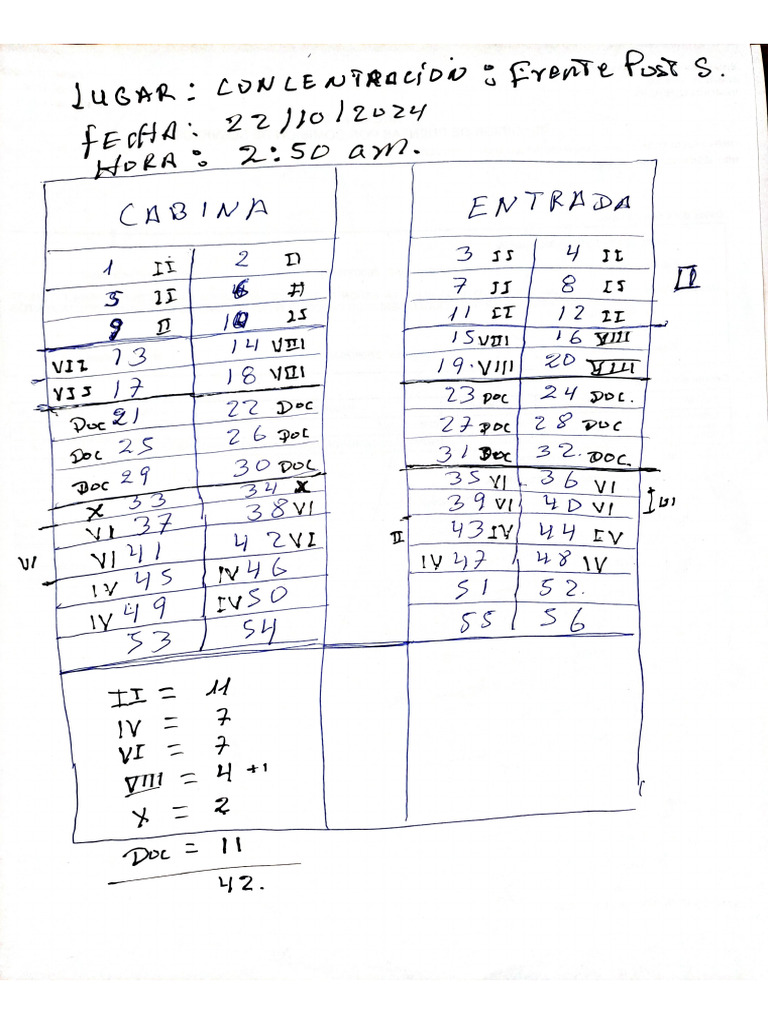 LUGAR: CONCENTRACIÓN: Frente Post S.
FECHA: 22/10/2024
HORA: 2:50 am.
CABINA ENTRADA
1 II 2 II 3 II 4 II
5 II 6 II 7 II 8 II II
9 II 10 II 11 II 12 II
VII 13 14 VIII 15 VIII 16 VIII
VII 17 18 VIII 19. VIII 20 VIII
Doc 21 22 Doc 23 Doc 24 Doc.
Doc 25 26 Doc 27 Doc 28 Doc
Doc 29 30 Doc 31 Doc 32. Doc.
X 33 34 X 35 VI 36 VI
VI 37 38 VI 39 VI 40 VI
VI VI 41 42 VI II 43 IV 44 IV
IV 45 IV 46 IV 47 48 IV
IV 49 IV 50 51 52.
53 54 55 56
II = 11
IV = 7
VI = 7
VIII = 4 +1
X = 2
Doc = 11
42.